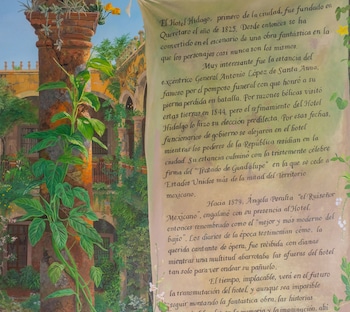 El Hotel Hidalgo, primero de la ciudad, fue fundado en
Querétaro el año de 1825. Desde entonces se ha
convertido en el escenario de una obra fantástica en la
que los personajes casi nunca son los mismos.
Muy interesante fue la estancia del
excéntrico General Antonio López de Santa Anna,
famoso por el pomposo funeral con que honró a su
pierna perdida en batalla. Por razones bélicas visitó
estas tierras en 1844, pero el refinamiento del Hotel
Hidalgo lo hizo su elección predilecta. Por esas fechas,
funcionarios de gobierno se alojaron en el hotel
mientras los poderes de la República residían en la
ciudad. Su estancia culminó con la tristemente célebre
firma del "Tratado de Guadalupe" en la que se cede a
Estados Unidos más de la mitad del territorio
mexicano.
Hacia 1874, Ángela Peralta, "el Ruiseñor
Mexicano", engalanó con su presencia al Hotel,
entonces renombrado como el "mejor y más moderno del
bajío". Los diarios de la época testimonian cómo la
querida cantante de ópera, fue recibida con dianas
mientras una multitud abarrotaba las afueras del hotel
tan solo para ver ondear su pañuelo.
El tiempo, implacable, verá en el futuro
la transmutación del hotel, y aunque sea imposible
seguir montando la fantástica obra, las historias